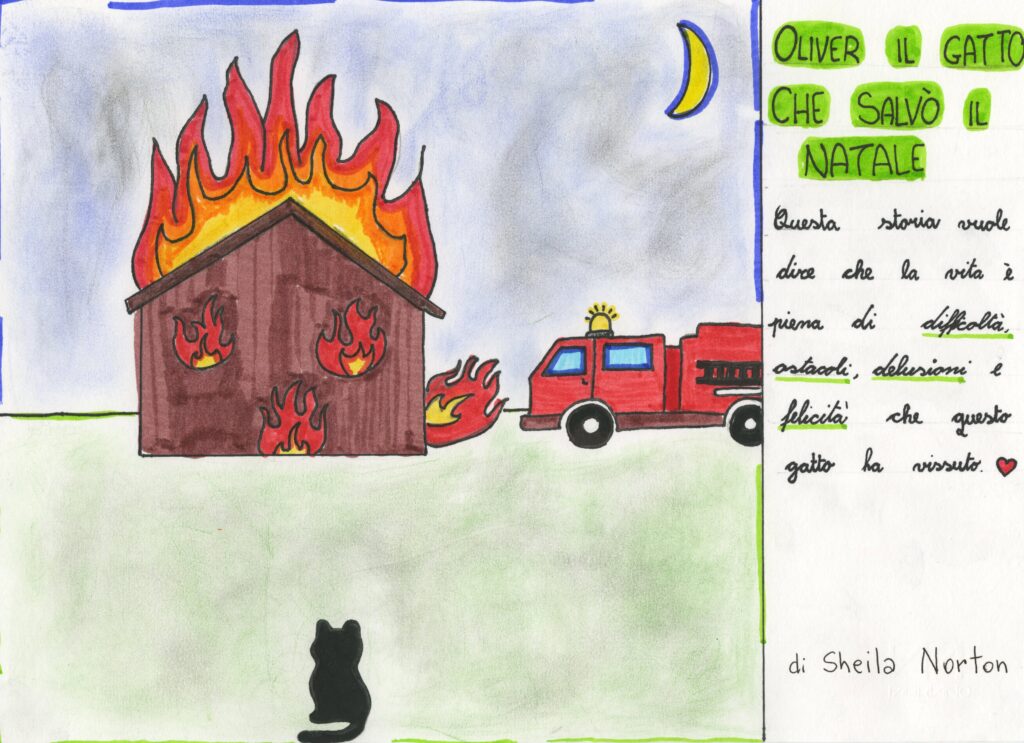 OLIVER IL GATTO
CHE SALVÒ IL
NATALE
Questa storia vuole
dire che la vita è
piena di difficoltà,
ostacoli, delusioni e
felicità che questo
gatto ha vissuto.
di Sheila Norton